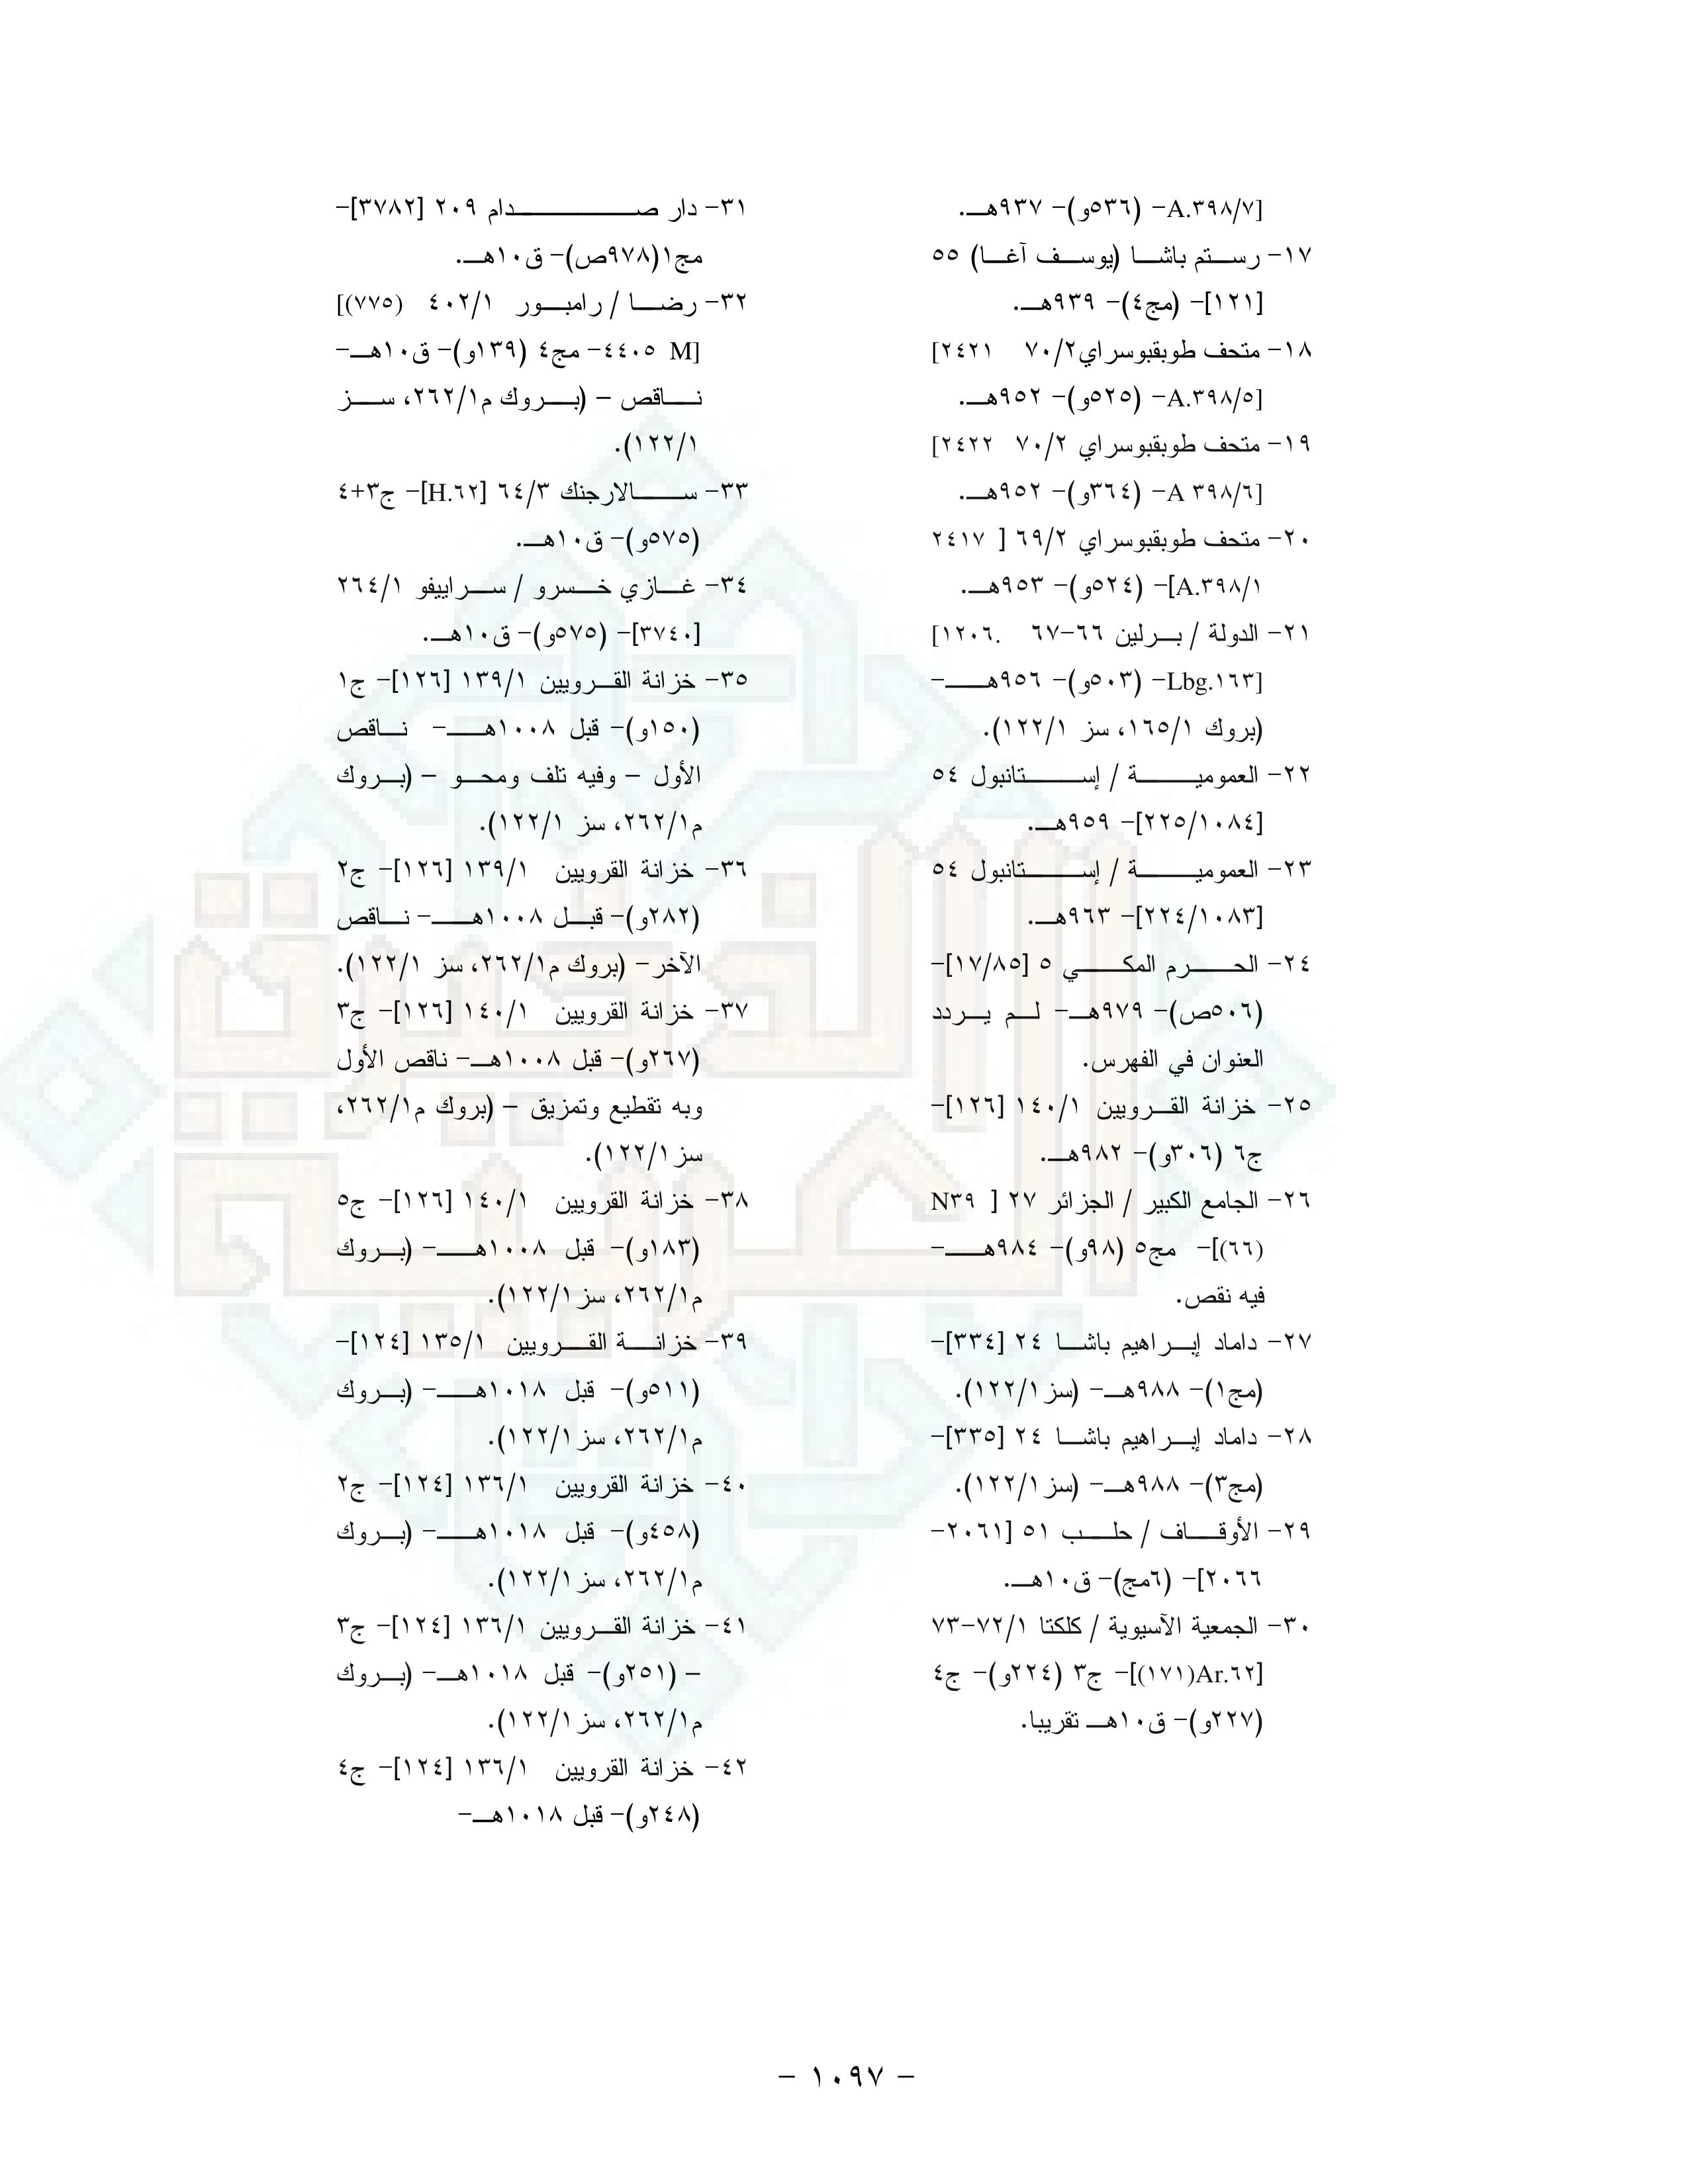 [A.٣٩٨/٧- (٥٣٦و)- ٩٣٧هـ.
١٧- رستم باشا (يوسف آغا) ٥٥
[١٢١]- (مج٤)- ٩٣٩هـ.
١٨- متحف طوبقبوسراي٧٠/٢ ٢٤٢١]
[A.٣٩٨/٥- (٥٢٥و)- ٩٥٢هـ.
١٩- متحف طوبقبوسراي ٧٠/٢ ٢٤٢٢]
[A ٣٩٨/٦- (٣٦٤و)- ٩٥٢هـ.
٢٠- متحف طوبقبوسراي ٦٩/٢ [ ٢٤١٧
A.٣٩٨/١]- (٥٢٤و)- ٩٥٣هـ.
٢١- الدولة / برلين ٦٦-٦٧ .١٢٠٦]
[Lbg.١٦٣- (٥٠٣و)- ٩٥٦هـ-
(بروك ١٦٥/١، سز ١٢٢/١).
٢٢- العمومية / إستانبول ٥٤
[٢٢٥/١٠٨٤]- ٩٥٩هـ.
٢٣- العمومية / إستانبول ٥٤
[٢٢٤/١٠٨٣]- ٩٦٣هـ.
٢٤- الحرم المكي ٥ [١٧/٨٥]-
(٥٠٦ص)- ٩٧٩هـ- لم يردد
العنوان في الفهرس.
٢٥- خزانة القرويين ١٤٠/١ [١٢٦]-
ج٦ (٣٠٦و)- ٩٨٢هـ.
٢٦- الجامع الكبير / الجزائر ٢٧ [ N٣٩
(٦٦)]- مج٥ (٩٨و)- ٩٨٤هـ-
فيه نقص.
٢٧- داماد إبراهيم باشا ٢٤ [٣٣٤]-
(مج١)- ٩٨٨هـ- (سز١٢٢/١).
٢٨- داماد إبراهيم باشا ٢٤ [٣٣٥]-
(مج٣)- ٩٨٨هـ- (سز١٢٢/١).
٢٩- الأوقاف / حلب ٥١ [٢٠٦١-
٢٠٦٦]- (٦مج)- ق١٠هـ.
٣٠- الجمعية الآسيوية / كلكتا ٧٢/١-٧٣
[Ar.٦٢(١٧١)]- ج٣ (٢٢٤و)- ج٤
(٢٢٧و)- ق١٠هـ تقريبا.
٣١- دار صدام ٢٠٩ [٣٧٨٢]-
مج١(٩٧٨ص)- ق١٠هـ.
٣٢- رضا / رامبور ٤٠٢/١ (٧٧٥)]
[M ٤٤٠٥- مج٤ (١٣٩و)- ق١٠هـ-
ناقص – (بروك م٢٦٢/١، سز
١٢٢/١).
٣٣- سالارجنك ٦٤/٣ [H.٦٢]- ج٣+٤
(٥٧٥و)- ق١٠هـ.
٣٤- غازي خسرو / سراييفو ٢٦٤/١
[٣٧٤٠]- (٥٧٥و)- ق١٠هـ.
٣٥- خزانة القرويين ١٣٩/١ [١٢٦]- ج١
(١٥٠و)- قبل ١٠٠٨هـ- ناقص
الأول – وفيه تلف ومحو – (بروك
م٢٦٢/١، سز ١٢٢/١).
٣٦- خزانة القرويين ١٣٩/١ [١٢٦]- ج٢
(٢٨٢و)- قبل ١٠٠٨هـ- ناقص
الآخر- (بروك م٢٦٢/١، سز ١٢٢/١).
٣٧- خزانة القرويين ١٤٠/١ [١٢٦]- ج٣
(٢٦٧و)- قبل ١٠٠٨هـ- ناقص الأول
وبه تقطيع وتمزيق – (بروك م٢٦٢/١،
سز١٢٢/١).
٣٨- خزانة القرويين ١٤٠/١ [١٢٦]- ج٥
(١٨٣و)- قبل ١٠٠٨هـ- (بروك
م٢٦٢/١، سز١٢٢/١).
٣٩- خزانة القرويين ١٣٥/١ [١٢٤]-
(٥١١و)- قبل ١٠١٨هـ- (بروك
م٢٦٢/١، سز١٢٢/١).
٤٠- خزانة القرويين ١٣٦/١ [١٢٤]- ج٢
(٤٥٨و)- قبل ١٠١٨هـ- (بروك
م٢٦٢/١، سز١٢٢/١).
٤١- خزانة القرويين ١٣٦/١ [١٢٤]- ج٣
– (٢٥١و)- قبل ١٠١٨هـ- (بروك
م٢٦٢/١، سز١٢٢/١).
٤٢- خزانة القرويين ١٣٦/١ [١٢٤]- ج٤
(٢٤٨و)- قبل ١٠١٨هـ-
- ١٠٩٧ -